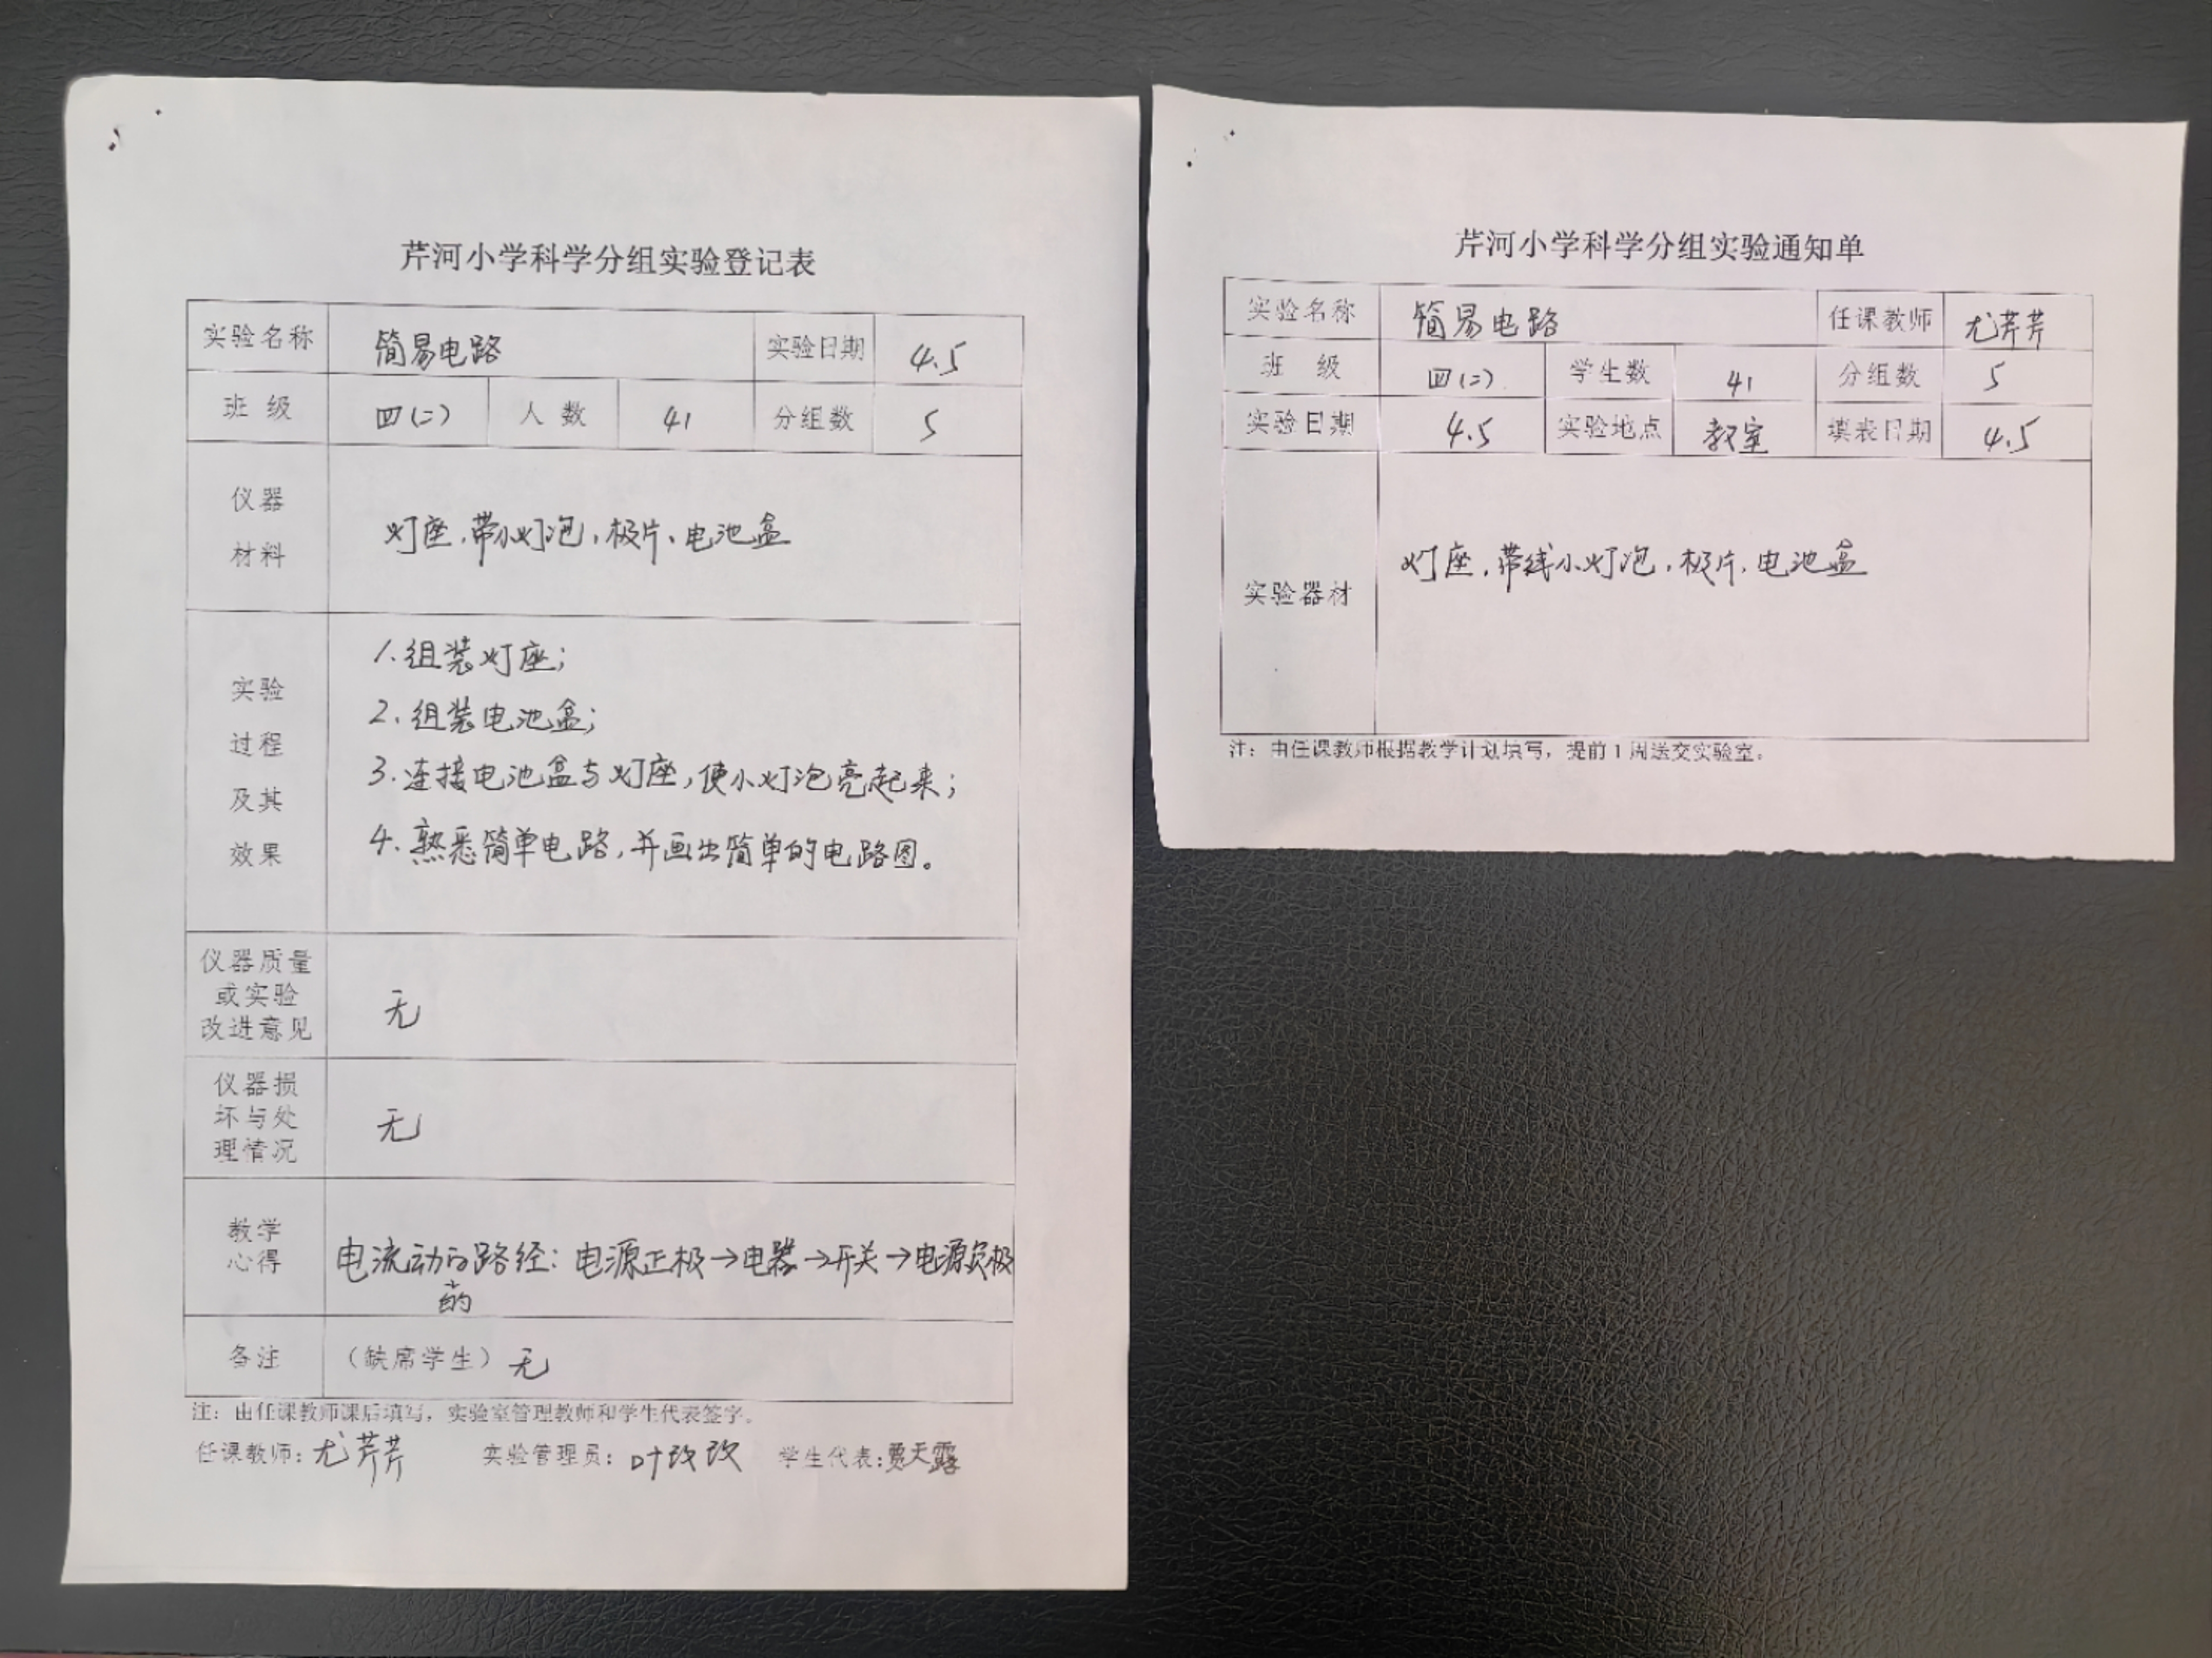 芹河小学科学分组实验登记表
实验名称 简易电路 实验日期 4.5
班 级 四(二) 人 数 41 分组数 5
仪器
材料
灯座、带小灯泡、极片、电池盒
实验
过程
及其
效果
1.组装灯座；
2.组装电池盒；
3.连接电池盒与灯座，使小灯泡亮起来；
4.熟悉简单电路，并画出简单的电路图。
仪器质量
或实验
改进意见
无
仪器损
坏与处
理情况
无
教学
心得
电流动的路径：电源正极→电器→开关→电源负极
的
备注 （缺席学生）无
注：由任课教师课后填写，实验室管理教师和学生代表签字。
任课教师：尤芹芹 实验管理员：叶改改 学生代表：贾天露
芹河小学科学分组实验通知单
实验名称 简易电路 任课教师 尤芹芹
班 级 四(二) 学生数 41 分组数 5
实验日期 4.5 实验地点 教室 填表日期 4.5
实验器材 灯座、带线小灯泡、极片、电池盒
注：由任课教师根据教学计划填写，提前1周送交实验室。